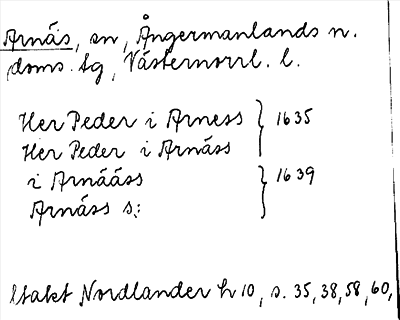 Arnäs, sn, Ångermanlands n.
doms. tg, Västernorrl. l.
Her Peder i Arness } 1635
Her Peder i Arnäss
i Arnääss } 1639
Arnäss s:
Nordlander h 10, s. 35, 38, 58, 60,